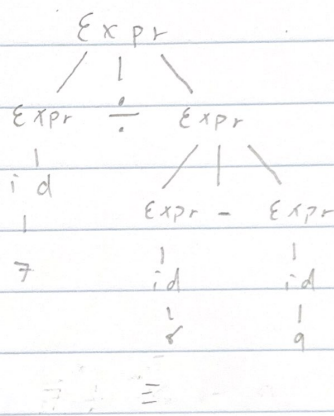 Expr
Expr ÷ Expr
id
Expr - Expr
7
id id
8 9